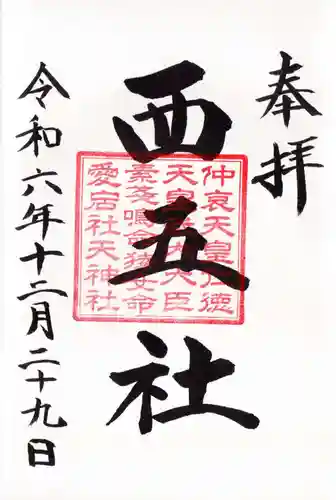 奉拝
西五社
仲哀天皇仁徳
天皇
大臣
命
愛宕社天神社
令和六年十二月二十九日